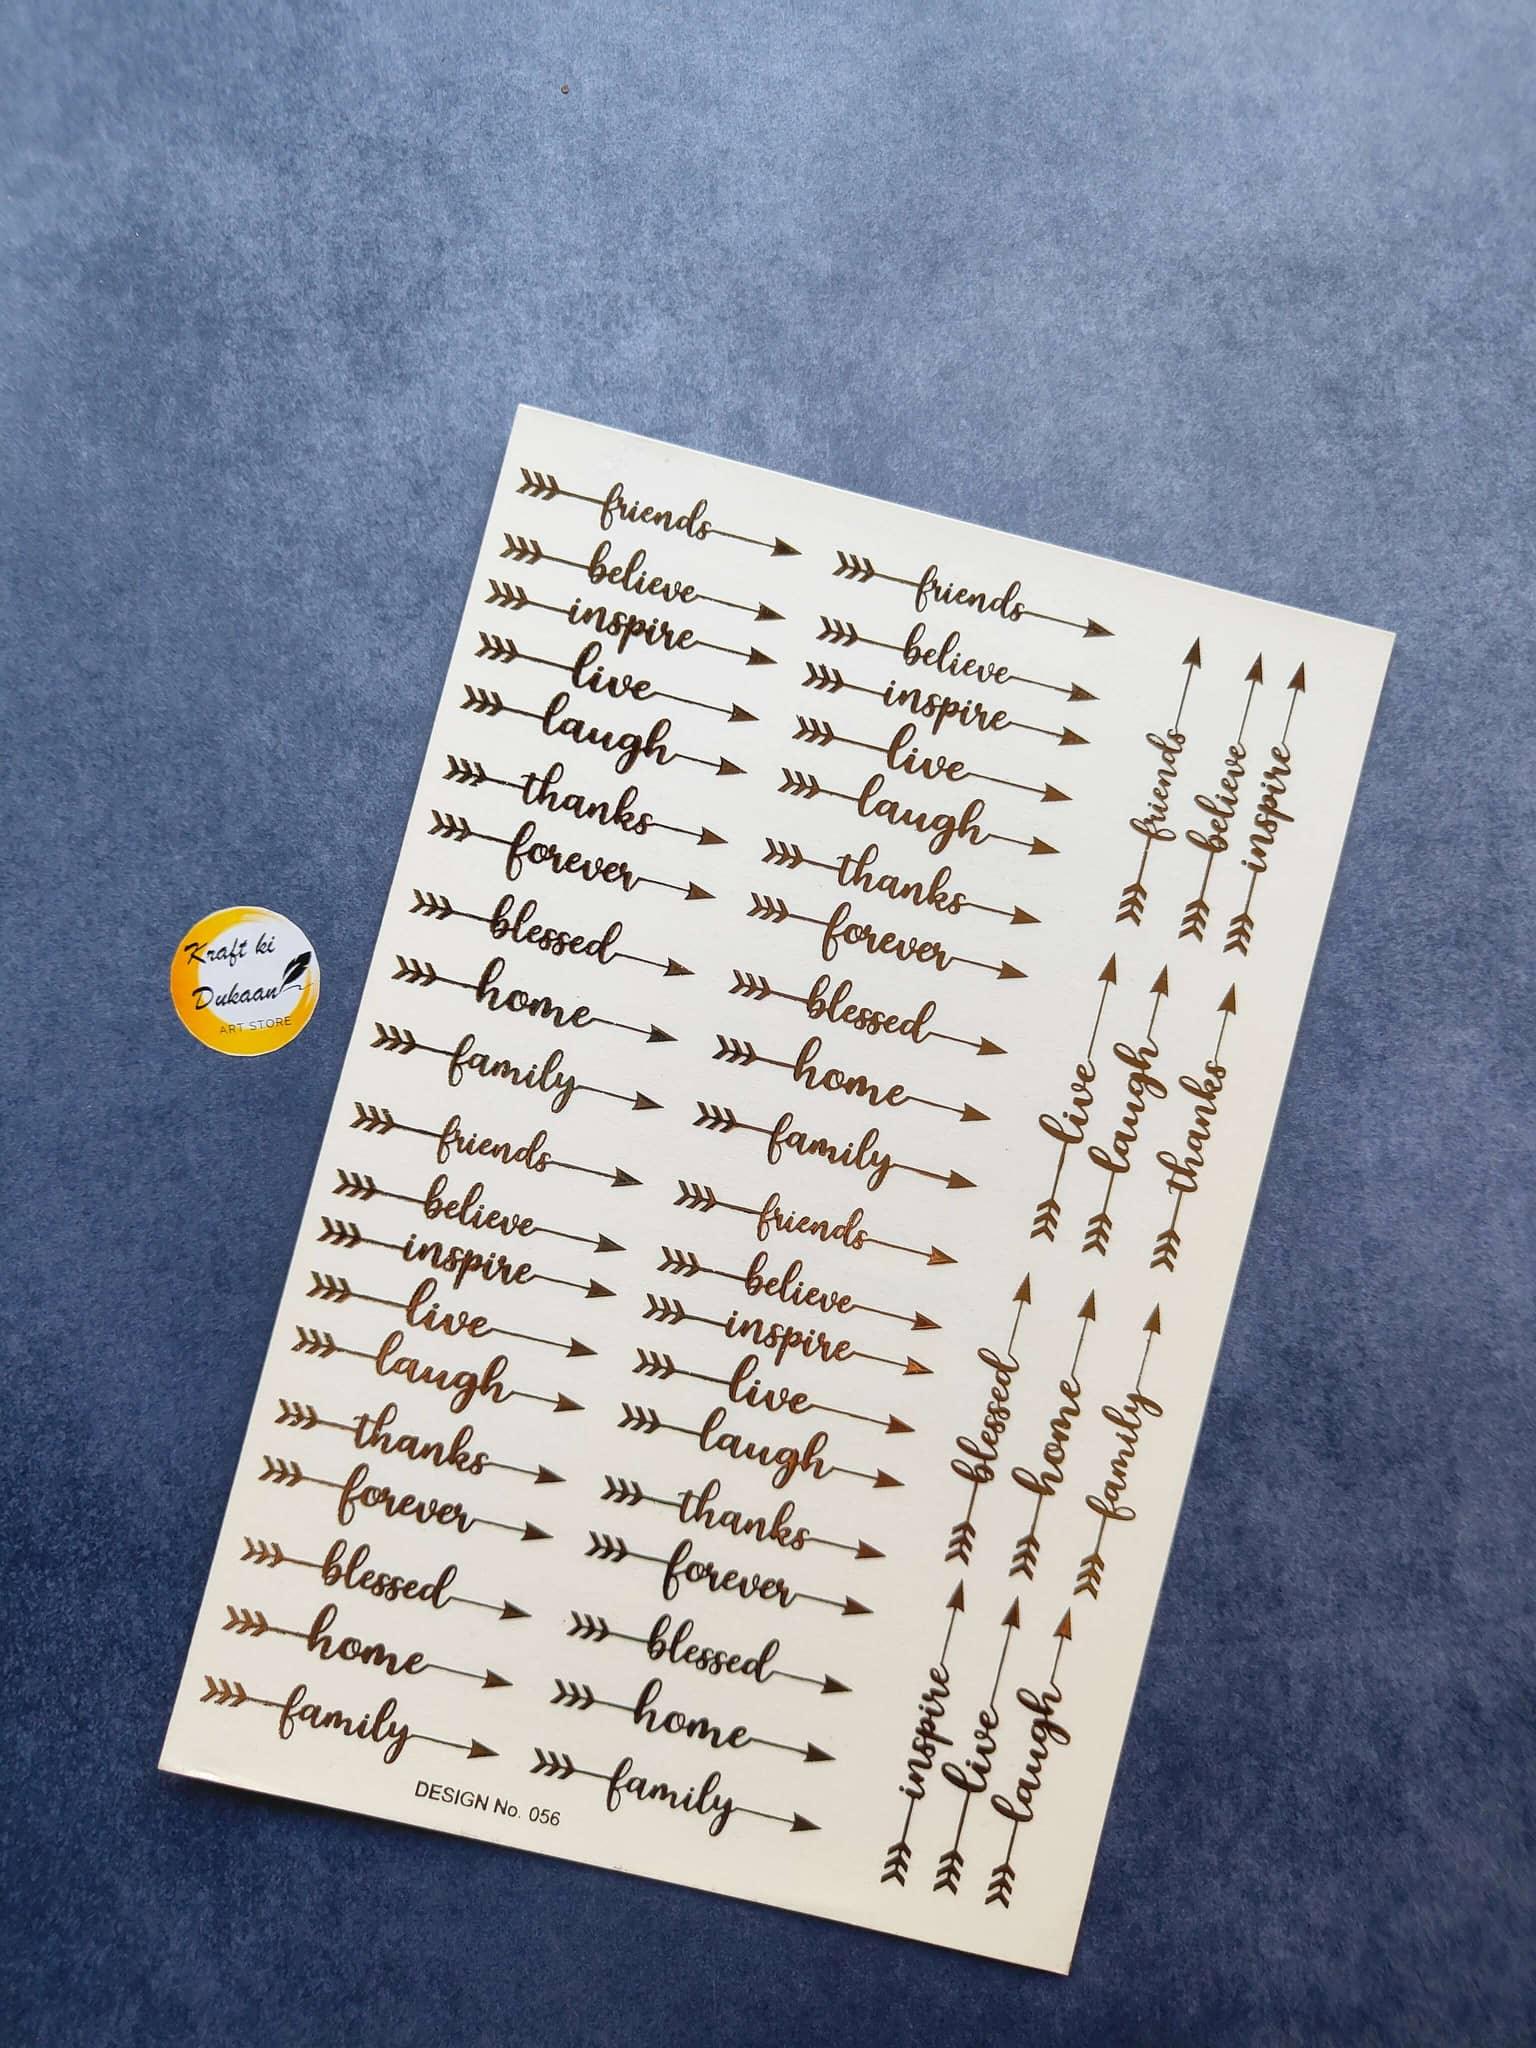 friends
believe
inspire
live
laugh
thanks
forever
blessed
home
family
friends
believe
inspire
live
laugh
thanks
forever
blessed
home
family
DESIGN No. 056
friends
believe
inspire
live
laugh
thanks
forever
blessed
home
family
friends
believe
inspire
live
laugh
thanks
forever
blessed
home
family
friends
believe
inspire
live
laugh
thanks
blessed
home
family
inspire
live
laugh
Kraft ki
Dukaan
ART STORE